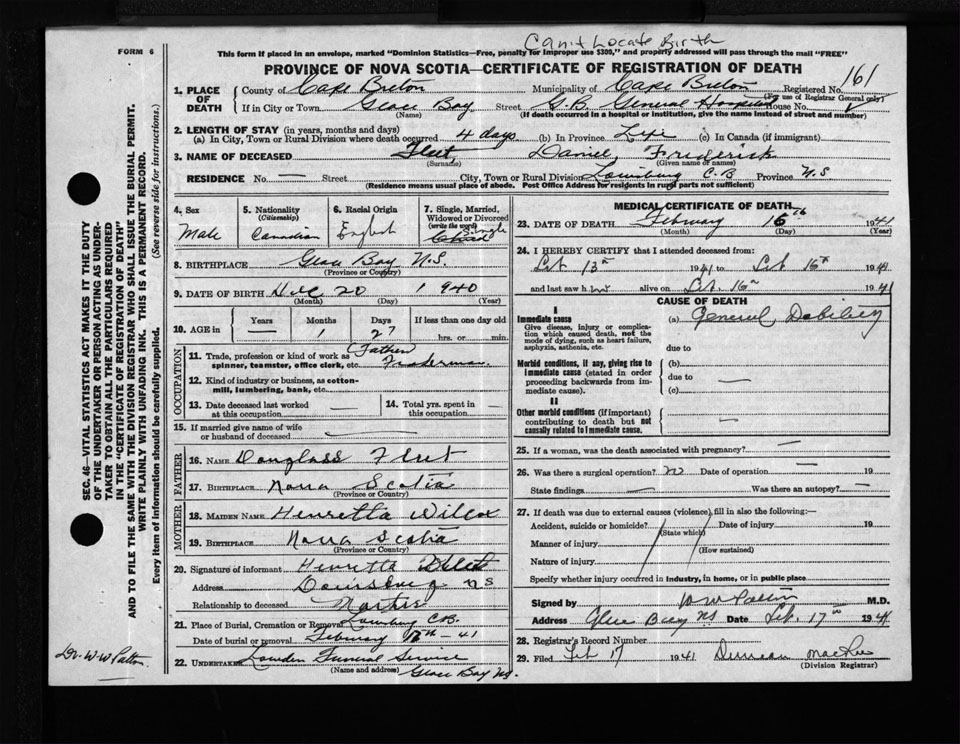 Can't Locate Birth
FORM 6
This form if placed in an envelope, marked "Dominion Statistics—Free, penalty for improper use $300," and properly addressed will pass through the mail "FREE"
PROVINCE OF NOVA SCOTIA—CERTIFICATE OF REGISTRATION OF DEATH
161
1. PLACE OF DEATH County of Cape Breton Municipality of Cape Breton Registered No.
(For use of Registrar General only)
If in City or Town Glace Bay Street G.B. General Hospital House No.
(Name) (If death occurred in a hospital or institution, give the name instead of street and number)
2. LENGTH OF STAY (in years, months and days)
(a) In City, Town or Rural Division where death occurred 4 days (b) In Province Life (c) In Canada (if immigrant)
3. NAME OF DECEASED Fleet Daniel Frederick
(Surname) (Given name or names)
RESIDENCE No. — Street City, Town or Rural Division Louisburg C.B Province N.S.
(Residence means usual place of abode. Post Office Address for residents in rural parts not sufficient)
4. Sex Male
5. Nationality (Citizenship) Canadian
6. Racial Origin English
7. Single, Married, Widowed or Divorced (write the word) Single
8. BIRTHPLACE Glace Bay N.S.
(Province or Country)
9. DATE OF BIRTH Dec 20 1940
(Month) (Day) (Year)
10. AGE in Years — Months 1 Days 27 If less than one day old
hrs. or min.
OCCUPATION
11. Trade, profession or kind of work as spinner, teamster, office clerk, etc. Father Fisherman
12. Kind of industry or business, as cotton-mill, lumbering, bank, etc.
13. Date deceased last worked at this occupation —
14. Total yrs. spent in this occupation —
15. If married give name of wife or husband of deceased —
FATHER
16. NAME Douglass Fleet
17. BIRTHPLACE Nova Scotia
(Province or Country)
MOTHER
18. MAIDEN NAME Henretta Wilcox
19. BIRTHPLACE Nova Scotia
(Province or Country)
20. Signature of informant Henretta Fleet
Address Louisburg N S
Relationship to deceased Mother
21. Place of Burial, Cremation or Removal Louisburg C.B.
Date of burial or removal February th - 41
22. UNDERTAKER Funeral Service
(Name and address) Glace Bay NS.
MEDICAL CERTIFICATE OF DEATH
23. DATE OF DEATH February 16th 1941
(Month) (Day) (Year)
24. I HEREBY CERTIFY that I attended deceased from:
Feb 13th 1941 to Feb 16th 1941
and last saw h im alive on Feb. 16th 1941
CAUSE OF DEATH
I
Immediate cause
Give disease, injury or complication which caused death, not the mode of dying, such as heart failure, asphyxia, asthenia, etc.
(a) General Debility
due to
Morbid conditions, if any, giving rise to immediate cause (stated in order proceeding backwards from immediate cause).
(b)
due to —
(c)
II
Other morbid conditions (if important) contributing to death but not causally related to immediate cause. —
25. If a woman, was the death associated with pregnancy? —
26. Was there a surgical operation? no Date of operation — 19
State findings — Was there an autopsy? —
27. If death was due to external causes (violence) fill in also the following:—
Accident, suicide or homicide? Date of injury 19
(State which)
Manner of injury
(How sustained)
Nature of injury
Specify whether injury occurred in industry, in home, or in public place
Signed by W W Patton M.D.
Address Glace Bay NS Date Feb. 17th 1941
28. Registrar's Record Number
29. Filed Feb 17 1941 Duncan
(Division Registrar)
SEC. 46—VITAL STATISTICS ACT MAKES IT THE DUTY OF THE UNDERTAKER OR PERSON ACTING AS UNDERTAKER TO OBTAIN ALL THE PARTICULARS REQUIRED IN THE "CERTIFICATE OF REGISTRATION OF DEATH" AND TO FILE THE SAME WITH THE DIVISION REGISTRAR WHO SHALL ISSUE THE BURIAL PERMIT.
WRITE PLAINLY WITH UNFADING INK. THIS IS A PERMANENT RECORD.
Every item of information should be carefully supplied. (See reverse side for instructions.)
Dr. W. W Patton.